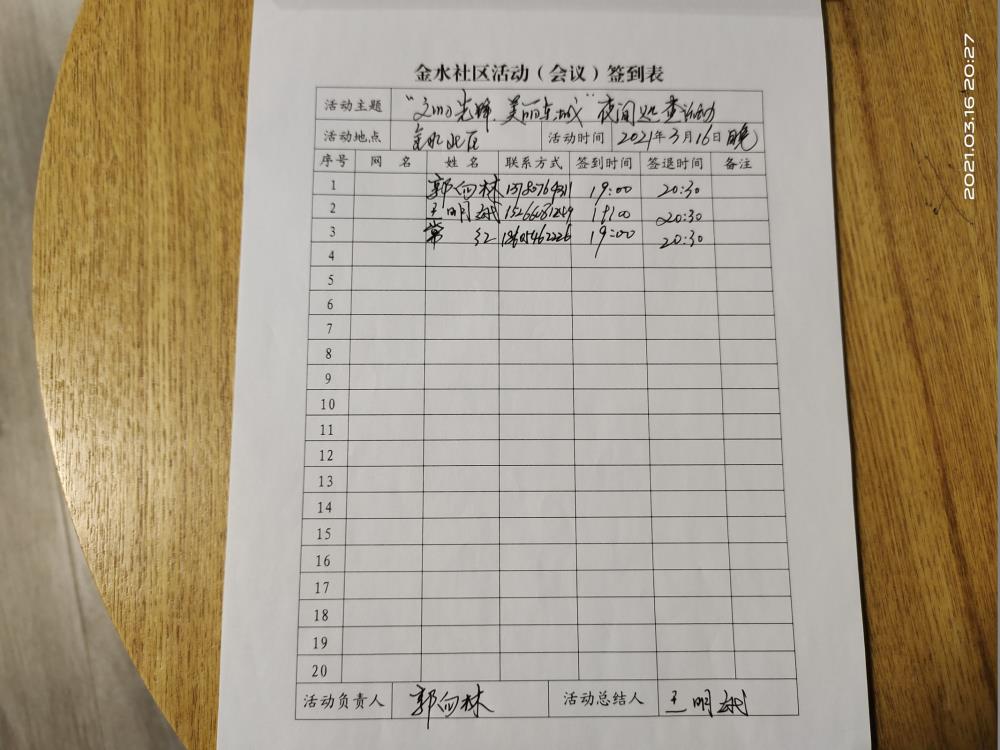 金水社区活动（会议）签到表
活动主题 夜间巡查活动
活动地点 金水社区 活动时间 2021年3月16日晚
序号 网名 姓名 联系方式 签到时间 签退时间 备注
1 郭向林 19:00 20:30
2 王明 19:00 20:30
3 常红 19:00 20:30
4
5
6
7
8
9
10
11
12
13
14
15
16
17
18
19
20
活动负责人 郭向林 活动总结人 王明
2021.03.16 20:27